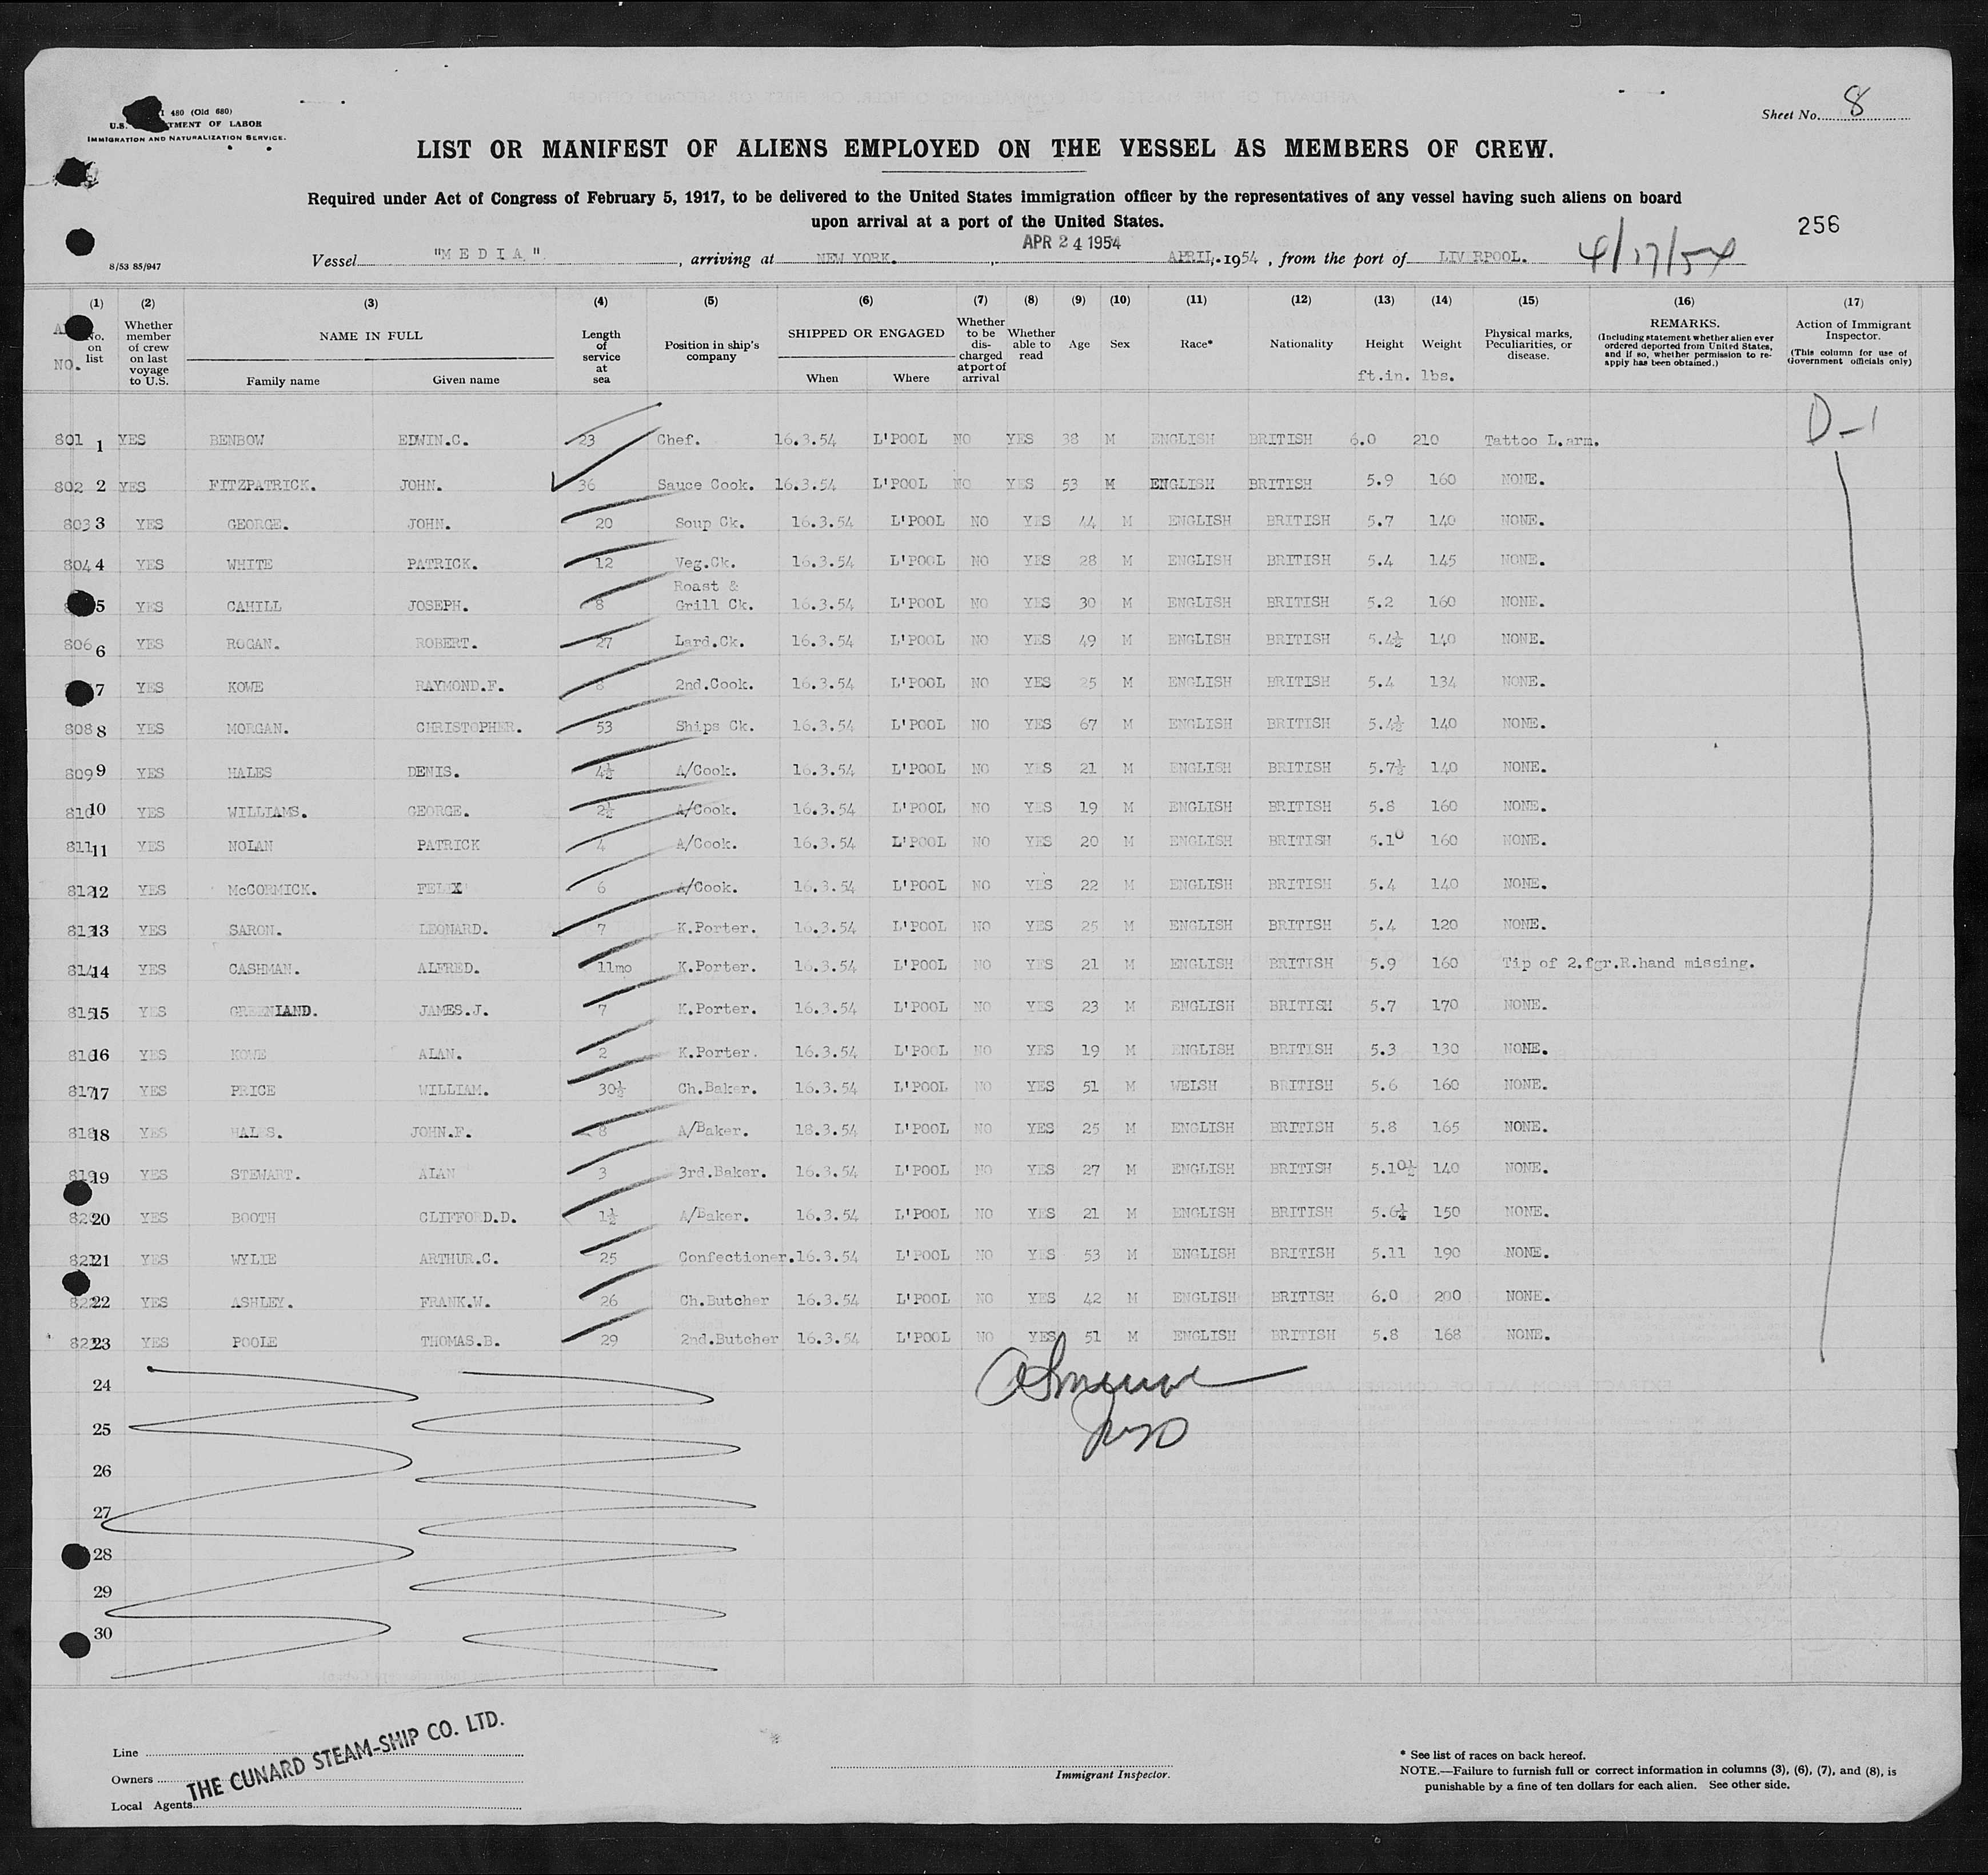 I 480 (Old 680)
U.S. TMENT OF LABOR
IMMIGRATION AND NATURALIZATION SERVICE.
Sheet No. 8
LIST OR MANIFEST OF ALIENS EMPLOYED ON THE VESSEL AS MEMBERS OF CREW.
Required under Act of Congress of February 5, 1917, to be delivered to the United States immigration officer by the representatives of any vessel having such aliens on board
upon arrival at a port of the United States.
256
APR 24 1954
8/53 85/947
Vessel "MEDIA" , arriving at NEW YORK. , APRIL. 1954 , from the port of LIV RPOOL. 4/17/54
(1) (2) (3) (4) (5) (6) (7) (8) (9) (10) (11) (12) (13) (14) (15) (16) (17)
No. on list
NO.
Whether member of crew on last voyage to U.S.
NAME IN FULL
Family name Given name
Length of service at sea
Position in ship's company
SHIPPED OR ENGAGED
When Where
Whether to be discharged at port of arrival
Whether able to read
Age Sex Race* Nationality
Height ft.in.
Weight lbs.
Physical marks, Peculiarities, or disease.
REMARKS.
(Including statement whether alien ever ordered deported from United States, and if so, whether permission to re-apply has been obtained.)
Action of Immigrant Inspector.
(This column for use of Government officials only)
D-1
801 1 YES BENBOW EDWIN.C. 23 Chef. 16.3.54 L'POOL NO YES 38 M ENGLISH BRITISH 6.0 210 Tattoo L.arm.
802 2 YES FITZPATRICK. JOHN. 36 Sauce Cook. 16.3.54 L'POOL NO YES 53 M ENGLISH BRITISH 5.9 160 NONE.
803 3 YES GEORGE. JOHN. 20 Soup Ck. 16.3.54 L'POOL NO YES 44 M ENGLISH BRITISH 5.7 140 NONE.
804 4 YES WHITE PATRICK. 12 Veg.Ck. 16.3.54 L'POOL NO YES 28 M ENGLISH BRITISH 5.4 145 NONE.
5 YES CAHILL JOSEPH. 8 Roast & Grill Ck. 16.3.54 L'POOL NO YES 30 M ENGLISH BRITISH 5.2 160 NONE.
806 6 YES ROGAN. ROBERT. 27 Lard.Ck. 16.3.54 L'POOL NO YES 49 M ENGLISH BRITISH 5.4½ 140 NONE.
7 YES KOWE RAYMOND.F. 8 2nd.Cook. 16.3.54 L'POOL NO YES 25 M ENGLISH BRITISH 5.4 134 NONE.
808 8 YES MORGAN. CHRISTOPHER. 53 Ships Ck. 16.3.54 L'POOL NO YES 67 M ENGLISH BRITISH 5.4½ 140 NONE.
809 9 YES HALES DENIS. 4½ A/Cook. 16.3.54 L'POOL NO YES 21 M ENGLISH BRITISH 5.7½ 140 NONE.
810 10 YES WILLIAMS. GEORGE. 2½ A/Cook. 16.3.54 L'POOL NO YES 19 M ENGLISH BRITISH 5.8 160 NONE.
811 11 YES NOLAN PATRICK 4 A/Cook. 16.3.54 L'POOL NO YES 20 M ENGLISH BRITISH 5.10 160 NONE.
812 12 YES McCORMICK. FELIX 6 A/Cook. 16.3.54 L'POOL NO YES 22 M ENGLISH BRITISH 5.4 140 NONE.
813 13 YES SARON. LEONARD. 7 K.Porter. 16.3.54 L'POOL NO YES 25 M ENGLISH BRITISH 5.4 120 NONE.
814 14 YES CASHMAN. ALFRED. 11mo K.Porter. 16.3.54 L'POOL NO YES 21 M ENGLISH BRITISH 5.9 160 Tip of 2.fgr.R.hand missing.
815 15 YES GREENLAND. JAMES.J. 7 K.Porter. 16.3.54 L'POOL NO YES 23 M ENGLISH BRITISH 5.7 170 NONE.
816 16 YES KOWE ALAN. 2 K.Porter. 16.3.54 L'POOL NO YES 19 M ENGLISH BRITISH 5.3 130 NONE.
817 17 YES PRICE WILLIAM. 30½ Ch.Baker. 16.3.54 L'POOL NO YES 51 M WELSH BRITISH 5.6 160 NONE.
818 18 YES HAL S. JOHN.F. 8 A/Baker. 18.3.54 L'POOL NO YES 25 M ENGLISH BRITISH 5.8 165 NONE.
819 19 YES STEWART. ALAN 3 3rd.Baker. 16.3.54 L'POOL NO YES 27 M ENGLISH BRITISH 5.10½ 140 NONE.
820 20 YES BOOTH CLIFFORD.D. 1½ A/Baker. 16.3.54 L'POOL NO YES 21 M ENGLISH BRITISH 5.6¼ 150 NONE.
821 21 YES WYLIE ARTHUR.C. 25 Confectioner. 16.3.54 L'POOL NO YES 53 M ENGLISH BRITISH 5.11 190 NONE.
822 22 YES ASHLEY. FRANK.W. 26 Ch.Butcher 16.3.54 L'POOL NO YES 42 M ENGLISH BRITISH 6.0 200 NONE.
823 23 YES POOLE THOMAS.B. 29 2nd.Butcher 16.3.54 L'POOL NO YES 51 M ENGLISH BRITISH 5.8 168 NONE.
24
25
26
27
28
29
30
Line
Owners THE CUNARD STEAM-SHIP CO. LTD.
Local Agents
Immigrant Inspector.
* See list of races on back hereof.
NOTE.—Failure to furnish full or correct information in columns (3), (6), (7), and (8), is
punishable by a fine of ten dollars for each alien. See other side.